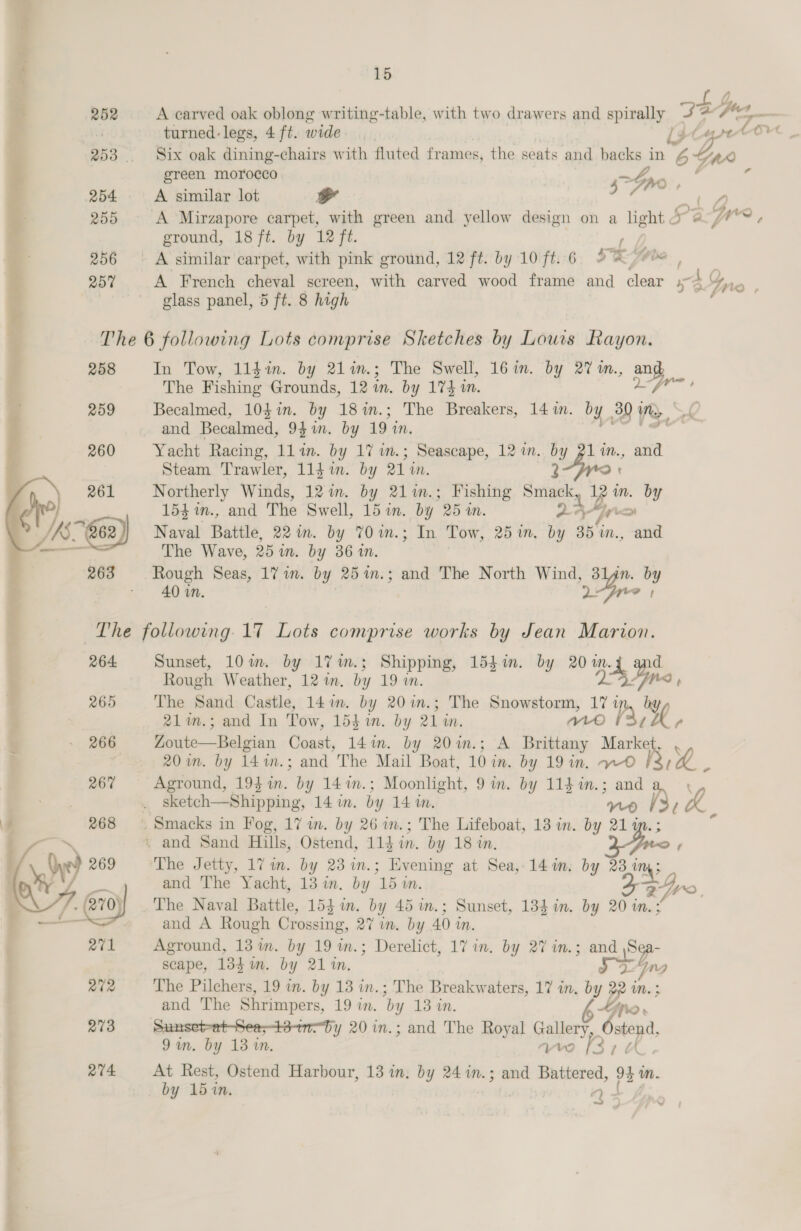 15
252 A carved oak oblong writing-table, with two drawers and spirally
turned legs, 4 ft. wide
253 Six oak dining-chairs with fluted frames, the seats and backs in
green morocco
254 A similar lot
255 A Mirzapore carpet, with green and yellow design on a light
ground, 18 ft. by 12 ft.
256 A similar carpet, with pink ground, 12 ft. by 10 ft. 6
257 A French cheval screen, with carved wood frame and clear
glass panel, 5 ft. 8 high
The 6 following Lots comprise Sketches by Louis Rayon.
258 In Tow, 11½ in. by 21 in.; The Swell, 16 in. by 27 in., and
The Fishing Grounds, 12 in. by 17½ in.
259 Becalmed, 10½ in. by 18 in.; The Breakers, 14 in. by 30 in.,
and Becalmed, 9½ in. by 19 in.
260 Yacht Racing, 11 in. by 17 in.; Seascape, 12 in. by 21 in., and
Steam Trawler, 11½ in. by 21 in.
261 Northerly Winds, 12 in. by 21 in.; Fishing Smack, 12 in. by
15½ in., and The Swell, 15 in. by 25 in.
262 Naval Battle, 22 in. by 70 in.; In Tow, 25 in. by 35 in., and
The Wave, 25 in. by 36 in.
263 Rough Seas, 17 in. by 25 in.; and The North Wind, 31 in. by
40 in.
The following 17 Lots comprise works by Jean Marion.
264 Sunset, 10 in. by 17 in.; Shipping, 15½ in. by 20 in.; and
Rough Weather, 12 in. by 19 in.
265 The Sand Castle, 14 in. by 20 in.; The Snowstorm, 17 in. by
21 in.; and In Tow, 15½ in. by 21 in.
266 Zoute—Belgian Coast, 14 in. by 20 in.; A Brittany Market,
20 in. by 14 in.; and The Mail Boat, 10 in. by 19 in.
267 Aground, 19½ in. by 14 in.; Moonlight, 9 in. by 11½ in.; and a
sketch—Shipping, 14 in. by 14 in.
268 Smacks in Fog, 17 in. by 26 in.; The Lifeboat, 13 in. by 21 in.;
and Sand Hills, Ostend, 11½ in. by 18 in.
269 The Jetty, 17 in. by 23 in.; Evening at Sea, 14 in. by 23 in.;
and The Yacht, 13 in. by 15 in.
270 The Naval Battle, 15½ in. by 45 in.; Sunset, 13½ in. by 20 in.;
and A Rough Crossing, 27 in. by 40 in.
271 Aground, 13 in. by 19 in.; Derelict, 17 in. by 27 in.; and Sea-
scape, 13½ in. by 21 in.
272 The Pilchers, 19 in. by 13 in.; The Breakwaters, 17 in. by 22 in.;
and The Shrimpers, 19 in. by 13 in.
273 Sunset at Sea, 13 in. by 20 in.; and The Royal Gallery, Ostend,
9 in. by 13 in.
274 At Rest, Ostend Harbour, 13 in. by 24 in.; and Battered, 9½ in.
by 15 in.